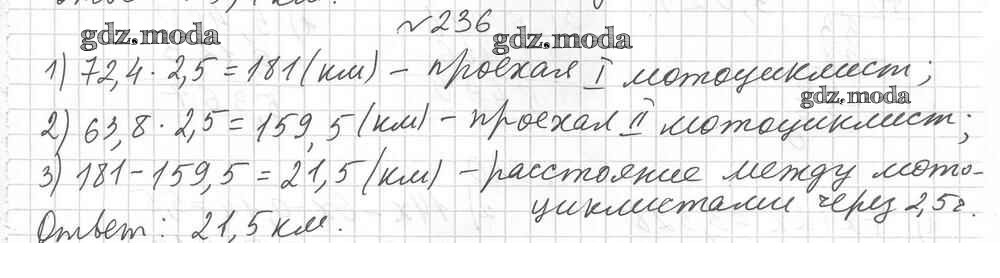 №236
gdz.moda
gdz.moda
1) 72,4 · 2,5 = 181 (км) – проехал I мотоциклист;
gdz.moda
2) 63,8 · 2,5 = 159,5 (км) – проехал II мотоциклист;
3) 181 – 159,5 = 21,5 (км) – расстояние между мото-
циклистами через 2,5 ч.
Ответ: 21,5 км.